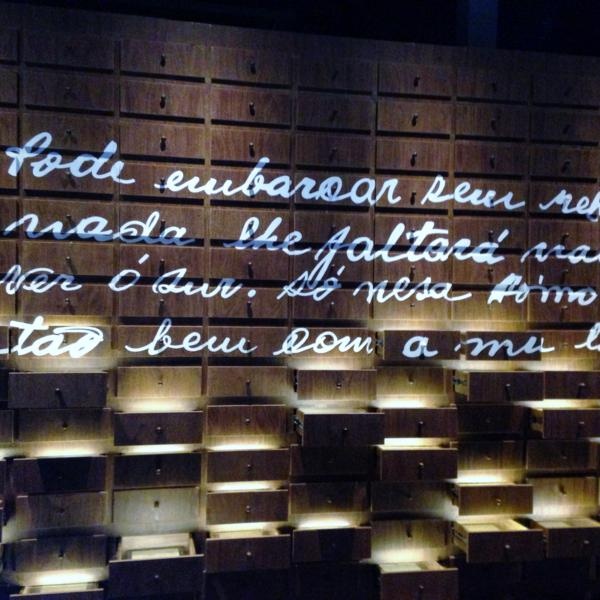 Pode embarcar sem
nada lhe faltará
ver ó sur. só nesa
tão bem com a mu